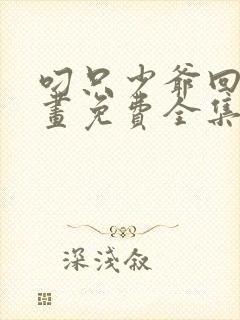 叼只少爷回
画免费全集
深浅叙